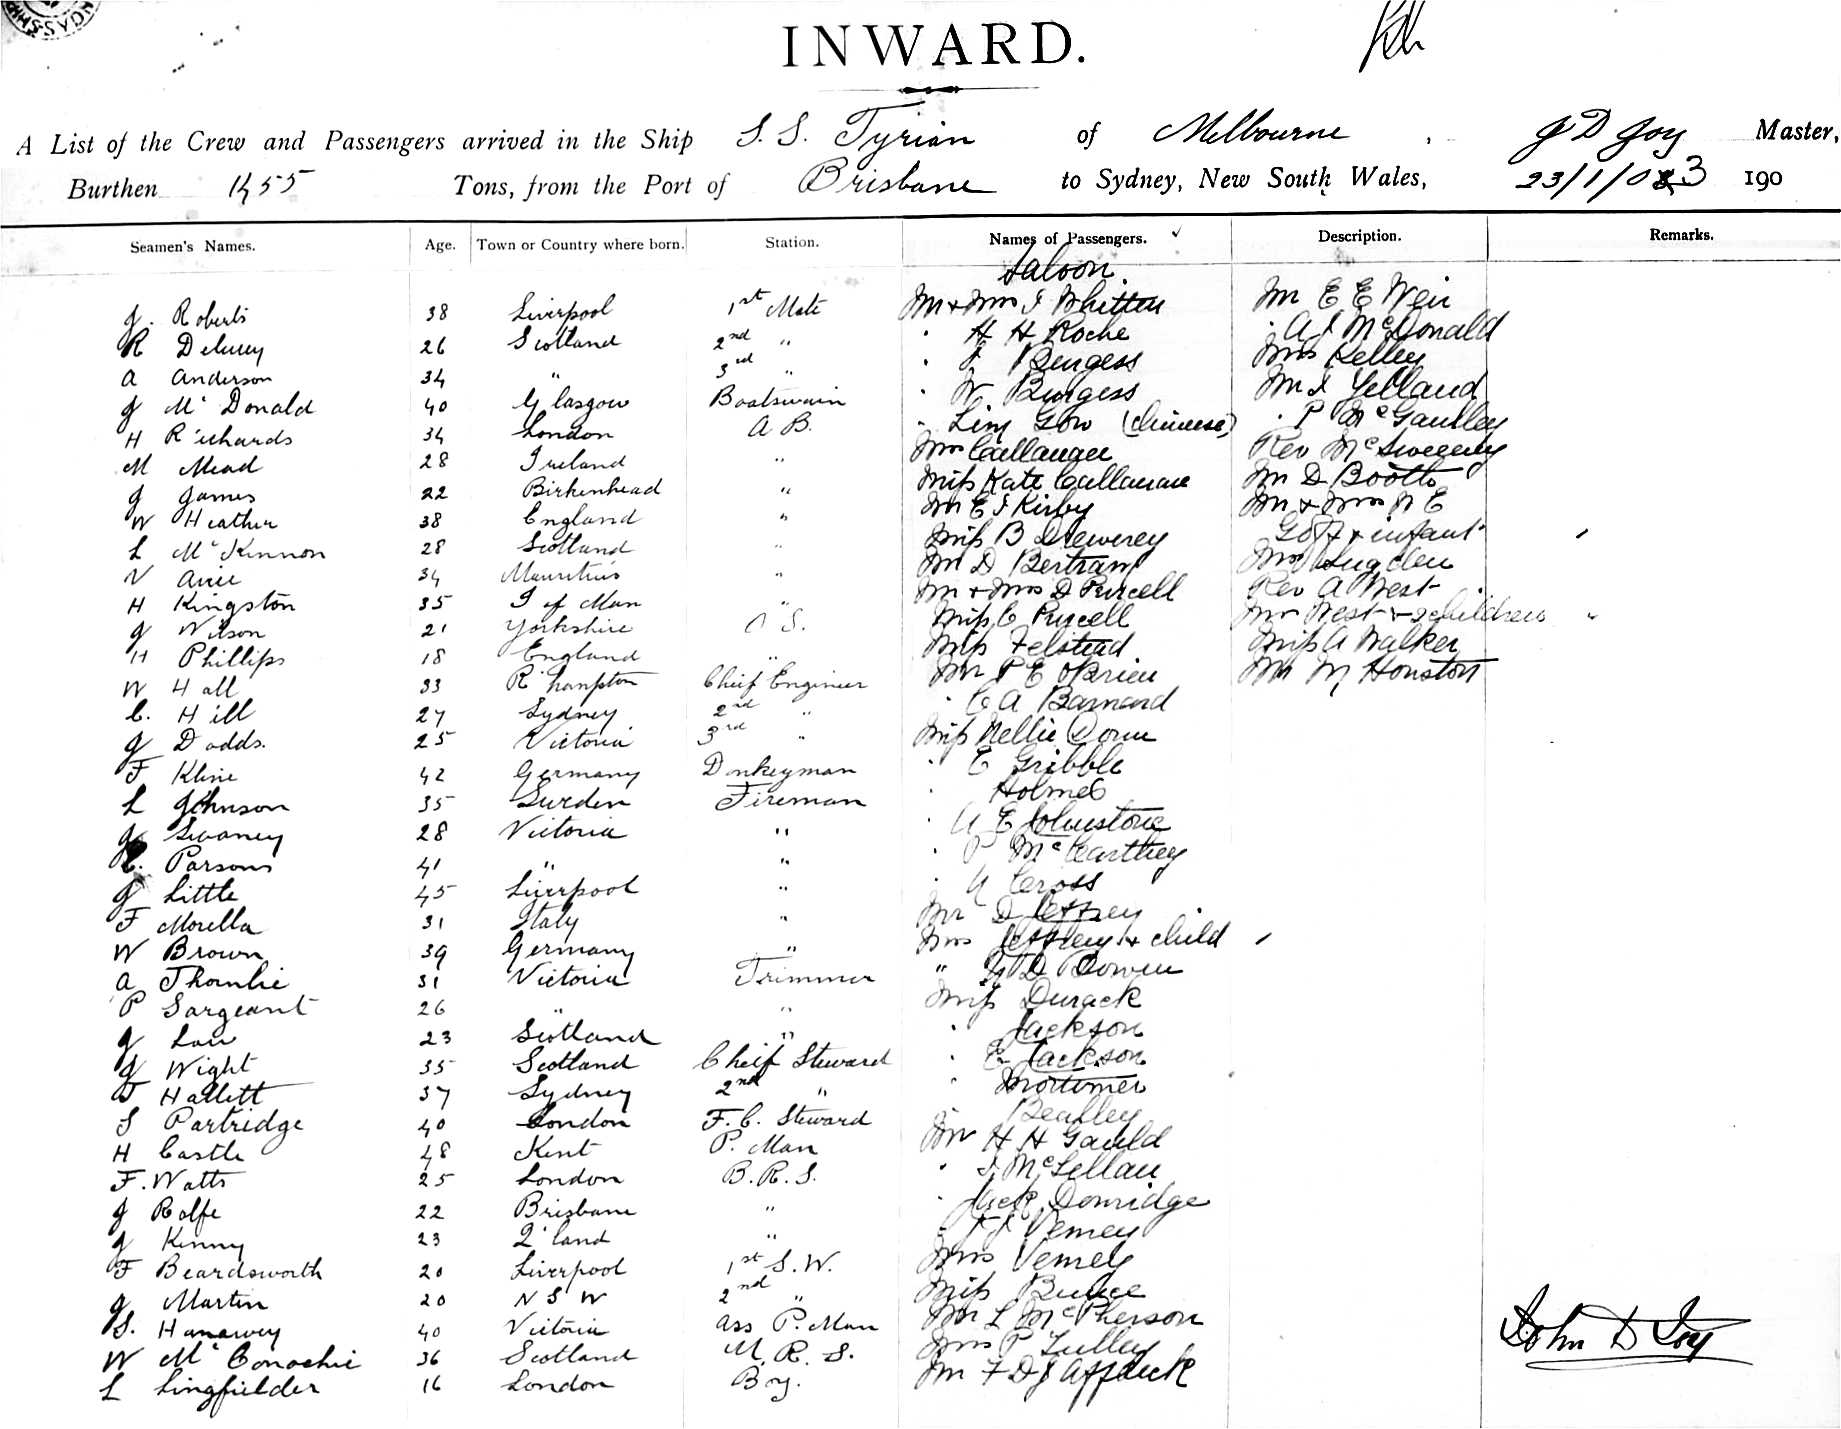 INWARD.
A List of the Crew and Passengers arrived in the Ship S. S. Tyrian of Melbourne, J D Joy Master,
Burthen 1455 Tons, from the Port of Brisbane to Sydney, New South Wales, 23/1/03 190
Seamen's Names. Age. Town or Country where born. Station. Names of Passengers. Description. Remarks.
Saloon
J. Roberts 38 Liverpool 1st Mate Mr & Mrs J Whitten Mr E E Weir
R 26 Scotland 2nd " " H H Roche " A J McDonald
A Anderson 34 " 3rd " " J Burgess Mrs Kelley
J McDonald 40 Glasgow Boatswain " W Burgess Mr J Yelland
H Richards 34 London A B. " Lim Gow (Chinese) " P McGaulley
M Mead 28 Ireland " Mrs Callanan Rev McSweeney
J James 22 Birkenhead " Miss Kate Callanan Mr D Booth
W Heather 38 England " Mr E J Kirby Mr & Mrs W E
L McKinnon 28 Scotland " Miss B Drewerey Goff & infant
V 34 Mauritius " Mr D Bertram Mrs Sugden
H Kingston 35 I of Man " Mr & Mrs D Purcell Rev A West
J Wilson 21 Yorkshire O S. Miss C Purcell Mrs West & children
H Phillips 18 England " Miss Felstead Miss A Walker
W Hall 33 R'hampton Cheif Engineer Mr P E O'Brien Mr M Houston
C. Hill 27 Sydney 2nd " " C A Barnard
J Dodds. 25 Victoria 3rd " Miss Nellie Dorm
F Kline 42 Germany Donkeyman " E Gribble
L Johnson 35 Sweden Fireman " Holmes
J Swaney 28 Victoria " " A E Johnstone
C. Parsons 41 " " " P McCarthey
J Little 45 Liverpool " " A Cross
F Morella 31 Italy " Mr D Jeffrey
W Brown 39 Germany " Mrs Jeffrey & child
A Thornlie 31 Victoria Trimmer " D Bowen
P Sargeant 26 " " Miss Durack
J Law 23 Scotland " " Jackson
J Wight 35 Scotland Cheif Steward " E Jackson
Hallett 37 Sydney 2nd " " Mortimer
S Partridge 40 London F. C. Steward " Beasley
H Castle 48 Kent P. Man Mr H H Gauld
F. Watts 25 London B. R. S. " J McLellan
J Rolfe 22 Brisbane " " Jack Domridge
J Kenny 23 Q'land " " Verney
F Beardsworth 20 Liverpool 1st S. W. Mrs Verney
J Martin 20 N S W 2nd " Miss Bulge
S. Hanawey 40 Victoria Ass P. Man Mr L McPherson
W McConochie 36 Scotland M. R. S. Mrs P Tulley
L Lingfielder 16 London Boy. Mr F D J Affleck
John D Joy